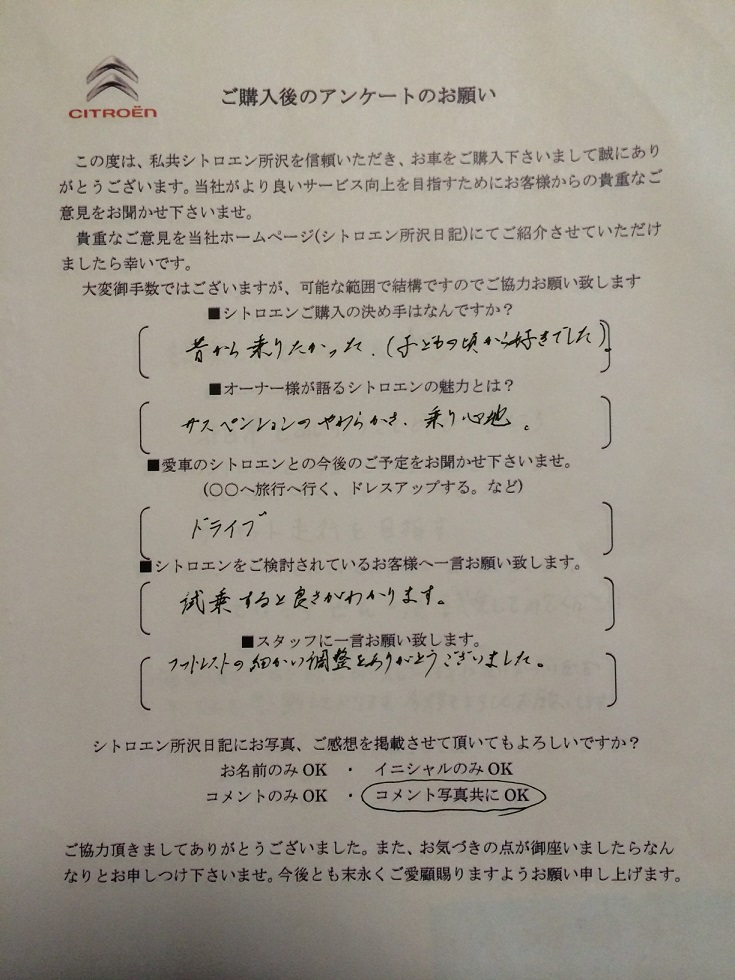 CITROËN
ご購入後のアンケートのお願い
この度は、私共シトロエン所沢を信頼いただき、お車をご購入下さいまして誠にあり
がとうございます。当社がより良いサービス向上を目指すためにお客様からの貴重なご
意見をお聞かせ下さいませ。
貴重なご意見を当社ホームページ(シトロエン所沢日記)にてご紹介させていただけ
ましたら幸いです。
大変御手数ではございますが、可能な範囲で結構ですのでご協力お願い致します
■シトロエンご購入の決め手はなんですか？
昔から乗りたかった．(子どもの頃から好きでした)
■オーナー様が語るシトロエンの魅力とは？
サスペンションのやわらかさ、乗り心地。
■愛車のシトロエンとの今後のご予定をお聞かせ下さいませ。
(○○へ旅行へ行く、ドレスアップする。など)
ドライブ
■シトロエンをご検討されているお客様へ一言お願い致します。
試乗すると良さがわかります。
■スタッフに一言お願い致します。
フットレストの細かい調整をありがとうございました。
シトロエン所沢日記にお写真、ご感想を掲載させて頂いてもよろしいですか？
お名前のみ OK ・ イニシャルのみ OK
コメントのみ OK ・ コメント写真共に OK
ご協力頂きましてありがとうございました。また、お気づきの点が御座いましたらなん
なりとお申しつけ下さいませ。今後とも末永くご愛顧賜りますようお願い申し上げます。